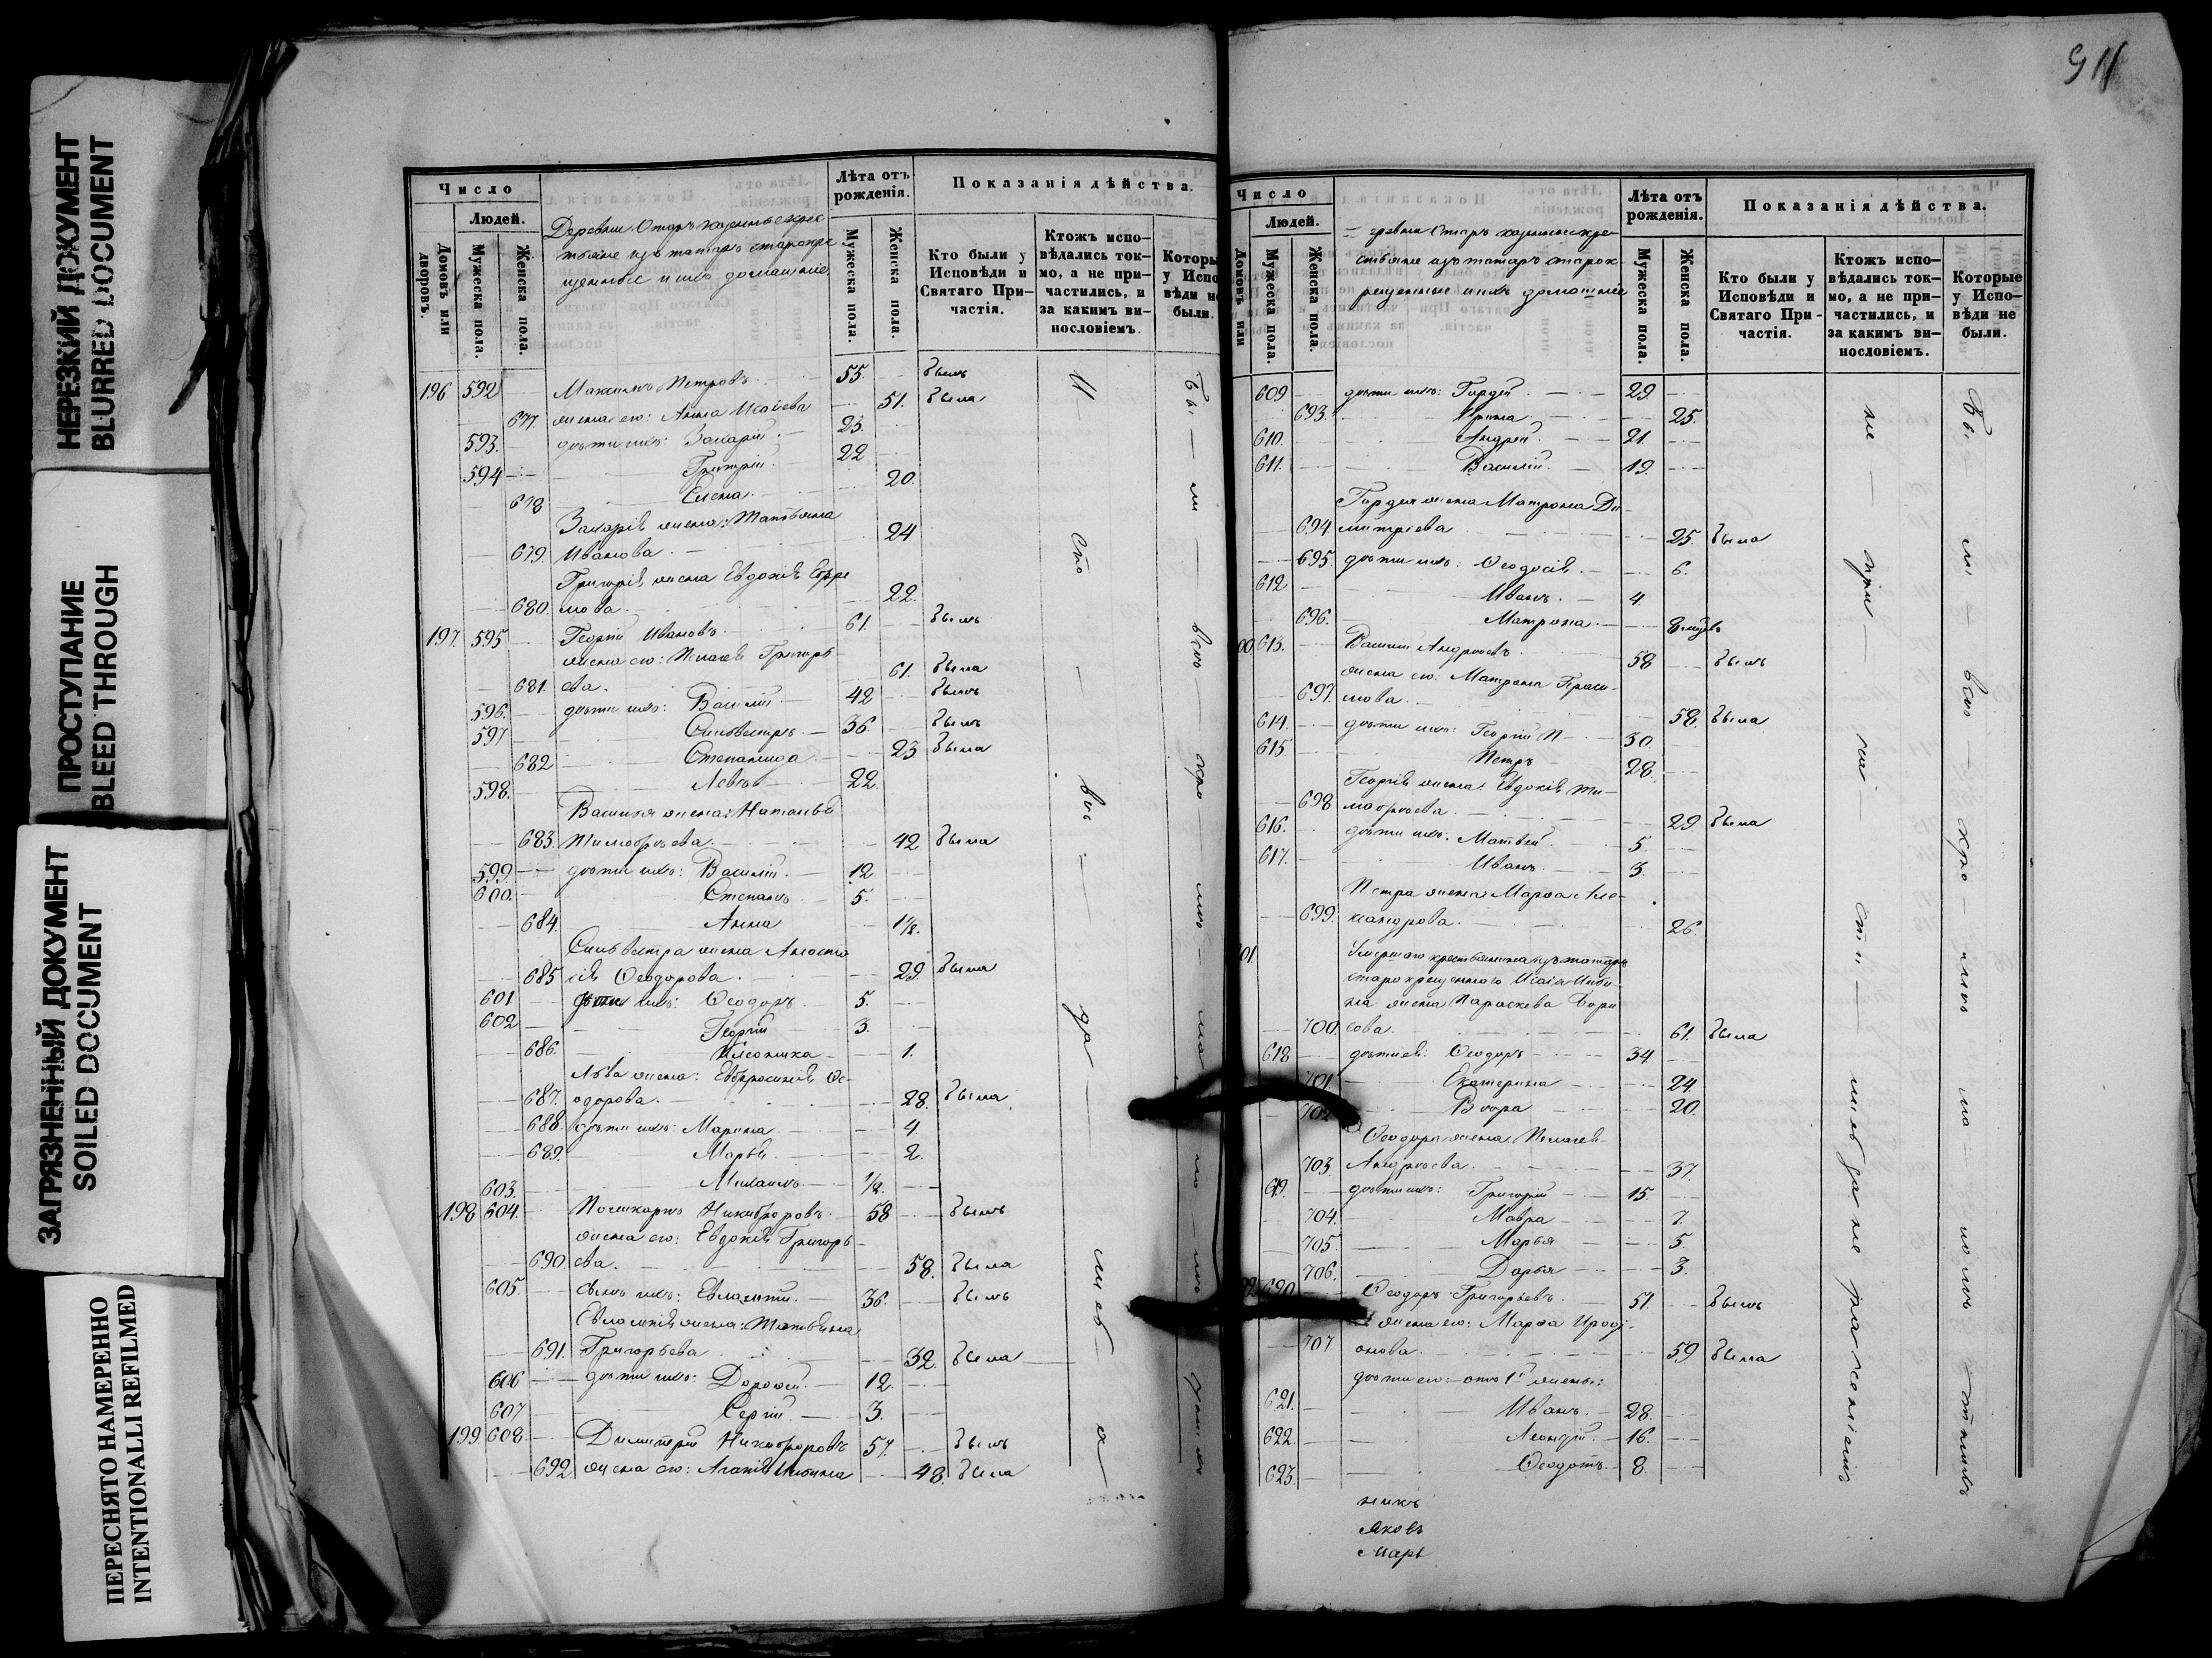 НЕРЕЗКИЙ ДОКУМЕНТ
BLURRED DOCUMENT
ПРОСТУПАНИЕ
BLEED THROUGH
ЗАГРЯЗНЕННЫЙ ДОКУМЕНТ
SOILED DOCUMENT
ПЕРЕСНЯТО НАМЕРЕННО
INTENTIONALLI REFILMED
Число
Людей.
Домовъ или дворовъ.
Мужеска пола.
Женска пола.
Деревни Отаръ казенные крес
тьяне изъ татаръ старокре
щенные и ихъ домашніе
Лѣта отъ рожденія.
Мужеска пола.
Женска пола.
Показанія дѣйства.
Кто были у Исповѣди и Святаго При-частія.
Ктожъ испо-вѣдались ток-мо, а не при-частились, и за какимъ ви-нословіемъ.
Которы
у Испо
вѣди не
были.
196 592 Максимъ Петровъ 55. былъ
677. жена его: Анна Исаева 51. была
593. дѣти ихъ: Захарій 23.
594 Григорій 22
678 Елена 20
Захарія жена: Татьяна
679. Иванова 24
Григорія жена Евдокія Ефре
680. мова 22.
197. 595 Георгій Ивановъ 61. былъ
жена его: Пелагея Григорь-
681. ева. 61. была
596. дѣти ихъ: Василій 42 былъ
597 Сильвестръ 36. былъ
682 Степанида 23 была
598. Левъ 22.
Василія жена: Наталья
683. Тимофеева. 42 была
599. дѣти ихъ: Василій 12
600. Степанъ 5.
684. Анна 1½.
Сильвестра жена Анаста
685 сія Ѳеодорова 29. была
601 дѣти ихъ: Ѳеодоръ 5.
602 Георгій 3.
686. 1.
Льва жена: Евфросинія Ѳе-
687. одорова. 28. была
688. дѣти ихъ: Марина 4.
689. Марья 2.
603. Михаилъ ½.
198 604. Поликарпъ Никифоровъ 58 былъ
жена его: Евдокія Григорь-
690. ева. 58. была
605. сынъ ихъ: Евлампій. 36. былъ
Евлампія жена: Татьяна
691. Григорьева 32. была
606 дѣти ихъ: Дороѳей. 12.
607 Сергій. 3.
199. 608 Димитрій Никифоровъ 57. былъ
692 жена его: 48. была
И сто вѣ да ли сь
911
Число
Людей.
Домовъ или
Мужеска пола.
Женска пола.
деревни Отаръ казенные кре-
стьяне изъ татаръ старок-
рещенные и ихъ домашніе
Лѣта отъ рожденія.
Мужеска пола.
Женска пола.
Показанія дѣйства.
Кто были у Исповѣди и Святаго При-частія.
Ктожъ испо-вѣдались ток-мо, а не при-частились, и за какимъ ви-нословіемъ.
Которые у Испо-вѣди не были.
609 дѣти ихъ: Гордѣй 29
693. Ирина 25.
610. Андрей 21.
611. Василій 19.
Гордея жена Матрона Ди-
694 митріева 25. была
695. дѣти ихъ: Ѳеодосія 6.
612 Иванъ. 4.
696. Матрона.
00. 613. Василій Андреевъ 58 былъ
жена его: Матрона Гераси-
697. мова 58. была
614. дѣти ихъ: Георгій 30
615. Петръ 28.
Георгія жена: Евдокія Ти-
698 мофеева 29 была
616. дѣти ихъ: Матвей 5
617. Иванъ. 3.
Петра жена: Марѳа Але-
699. ксандрова. 26.
01. Умершаго крестьянина изъ татаръ
старокрещеннаго
на жена Параскева Бори
700. сова. 61. была
618 дѣти ея: Ѳеодоръ 34.
701. Екатерина 24
702 20.
Ѳеодора жена: Пелагея
703. Андреева. 37.
619. дѣти ихъ: Григорій 15
704. Мавра 7.
705. Марья 5.
706. Дарья 3.
620. Ѳеодоръ Григорьевъ. 51. былъ
жена его: Марѳа
707 онова. 59 была
дѣти его: отъ 1й жены:
621. Иванъ. 28.
622. Леонтій. 16.
623. Ѳеодотъ. 8.
никъ
Яковъ
Марь